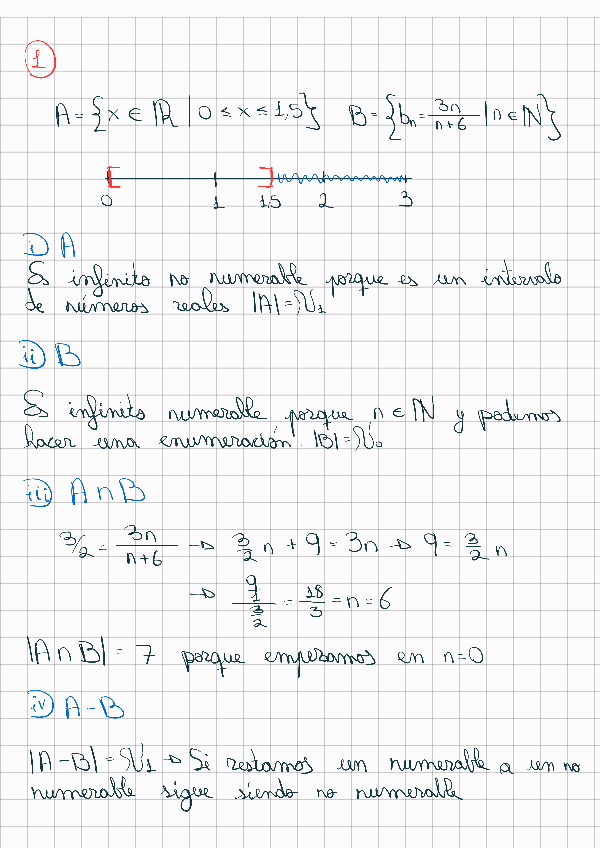 1
A = {x ∈ ℝ | 0 ≤ x ≤ 1,5} B = {bₙ = 3n/(n+6) | n ∈ ℕ}
0 1 1,5 2 3
i) A
Es infinito no numerable porque es un intervalo
de números reales |A| = ℵ₁
ii) B
Es infinito numerable porque n ∈ ℕ y podemos
hacer una enumeración. |B| = ℵ₀
iii) A ∩ B
3/2 = 3n/(n+6) → 3/2 n + 9 = 3n → 9 = 3/2 n
→ (9/1)/(3/2) = 18/3 = n = 6
|A ∩ B| = 7 porque empezamos en n=0
iv) A - B
|A - B| = ℵ₁ → Si restamos un numerable a un no
numerable sigue siendo no numerable